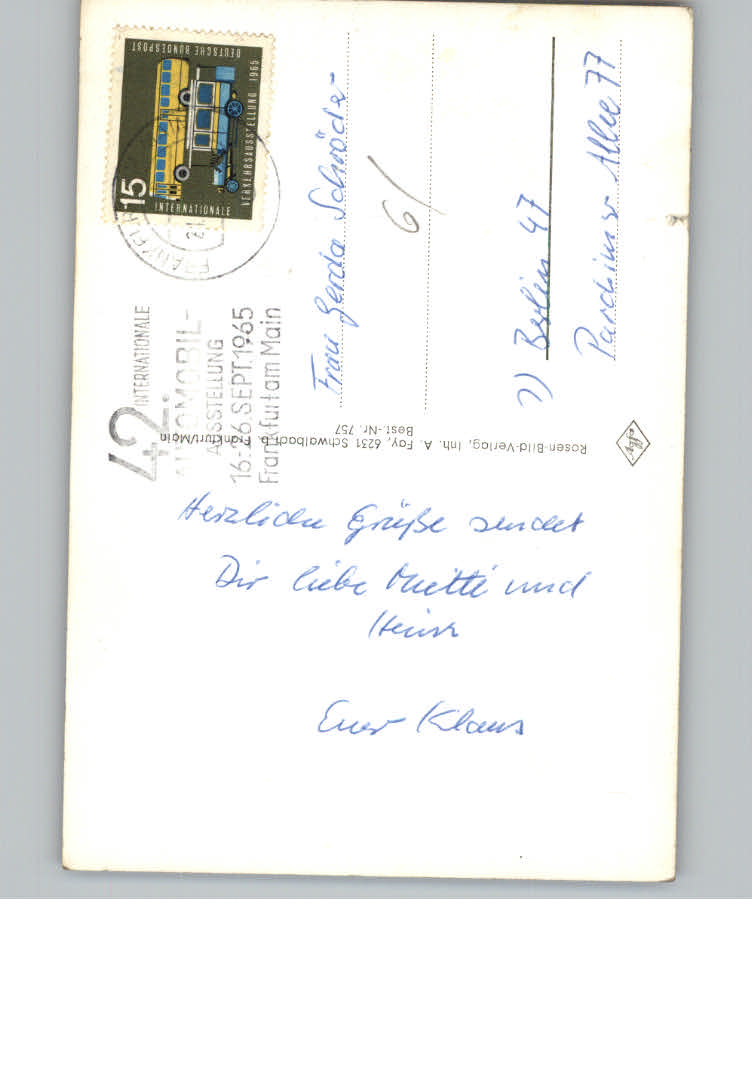 DEUTSCHE BUNDESPOST
15
INTERNATIONALE
VERKEHRSAUSSTELLUNG 1965
42.
INTERNATIONALE
AUTOMOBIL-
AUSSTELLUNG
16.-26.SEPT.1965
Frankfurt am Main
Frau Gerda Schröder
6/
1) Berlin 47
Parchimer Allee 77
Rosen-Bild-Verlag, Inh. A. Fay, 6231 Schwalbach b. Frankfurt/Main
Best.-Nr. 757
Herzliche Grüße sendet
Dir liebe Mutti und
Euer Klaus